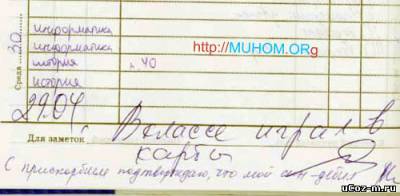 Среда 30
информатика
информатика
история № 40
история
http://MUHOM.ORg
29.04
Для заметок В классе играл в
карты
С прискорбием подтверждаю, что мой сын - дебил
uCoz-m.ru